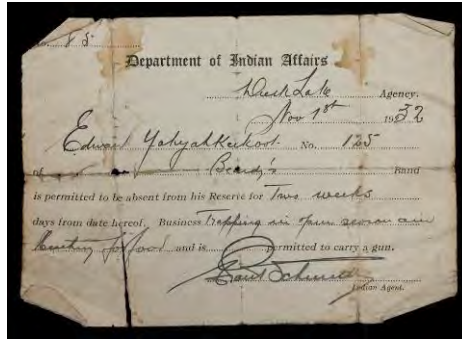 Department of Indian Affairs
Duck Lake Agency.
Nov 1st 1932
Edward Yahyahkeekoot No. 125
of Beardy's Band
is permitted to be absent from his Reserve for Two weeks
days from date hereof. Business Trapping in open season and
hunting for food and is permitted to carry a gun.
Schmidt
Indian Agent.